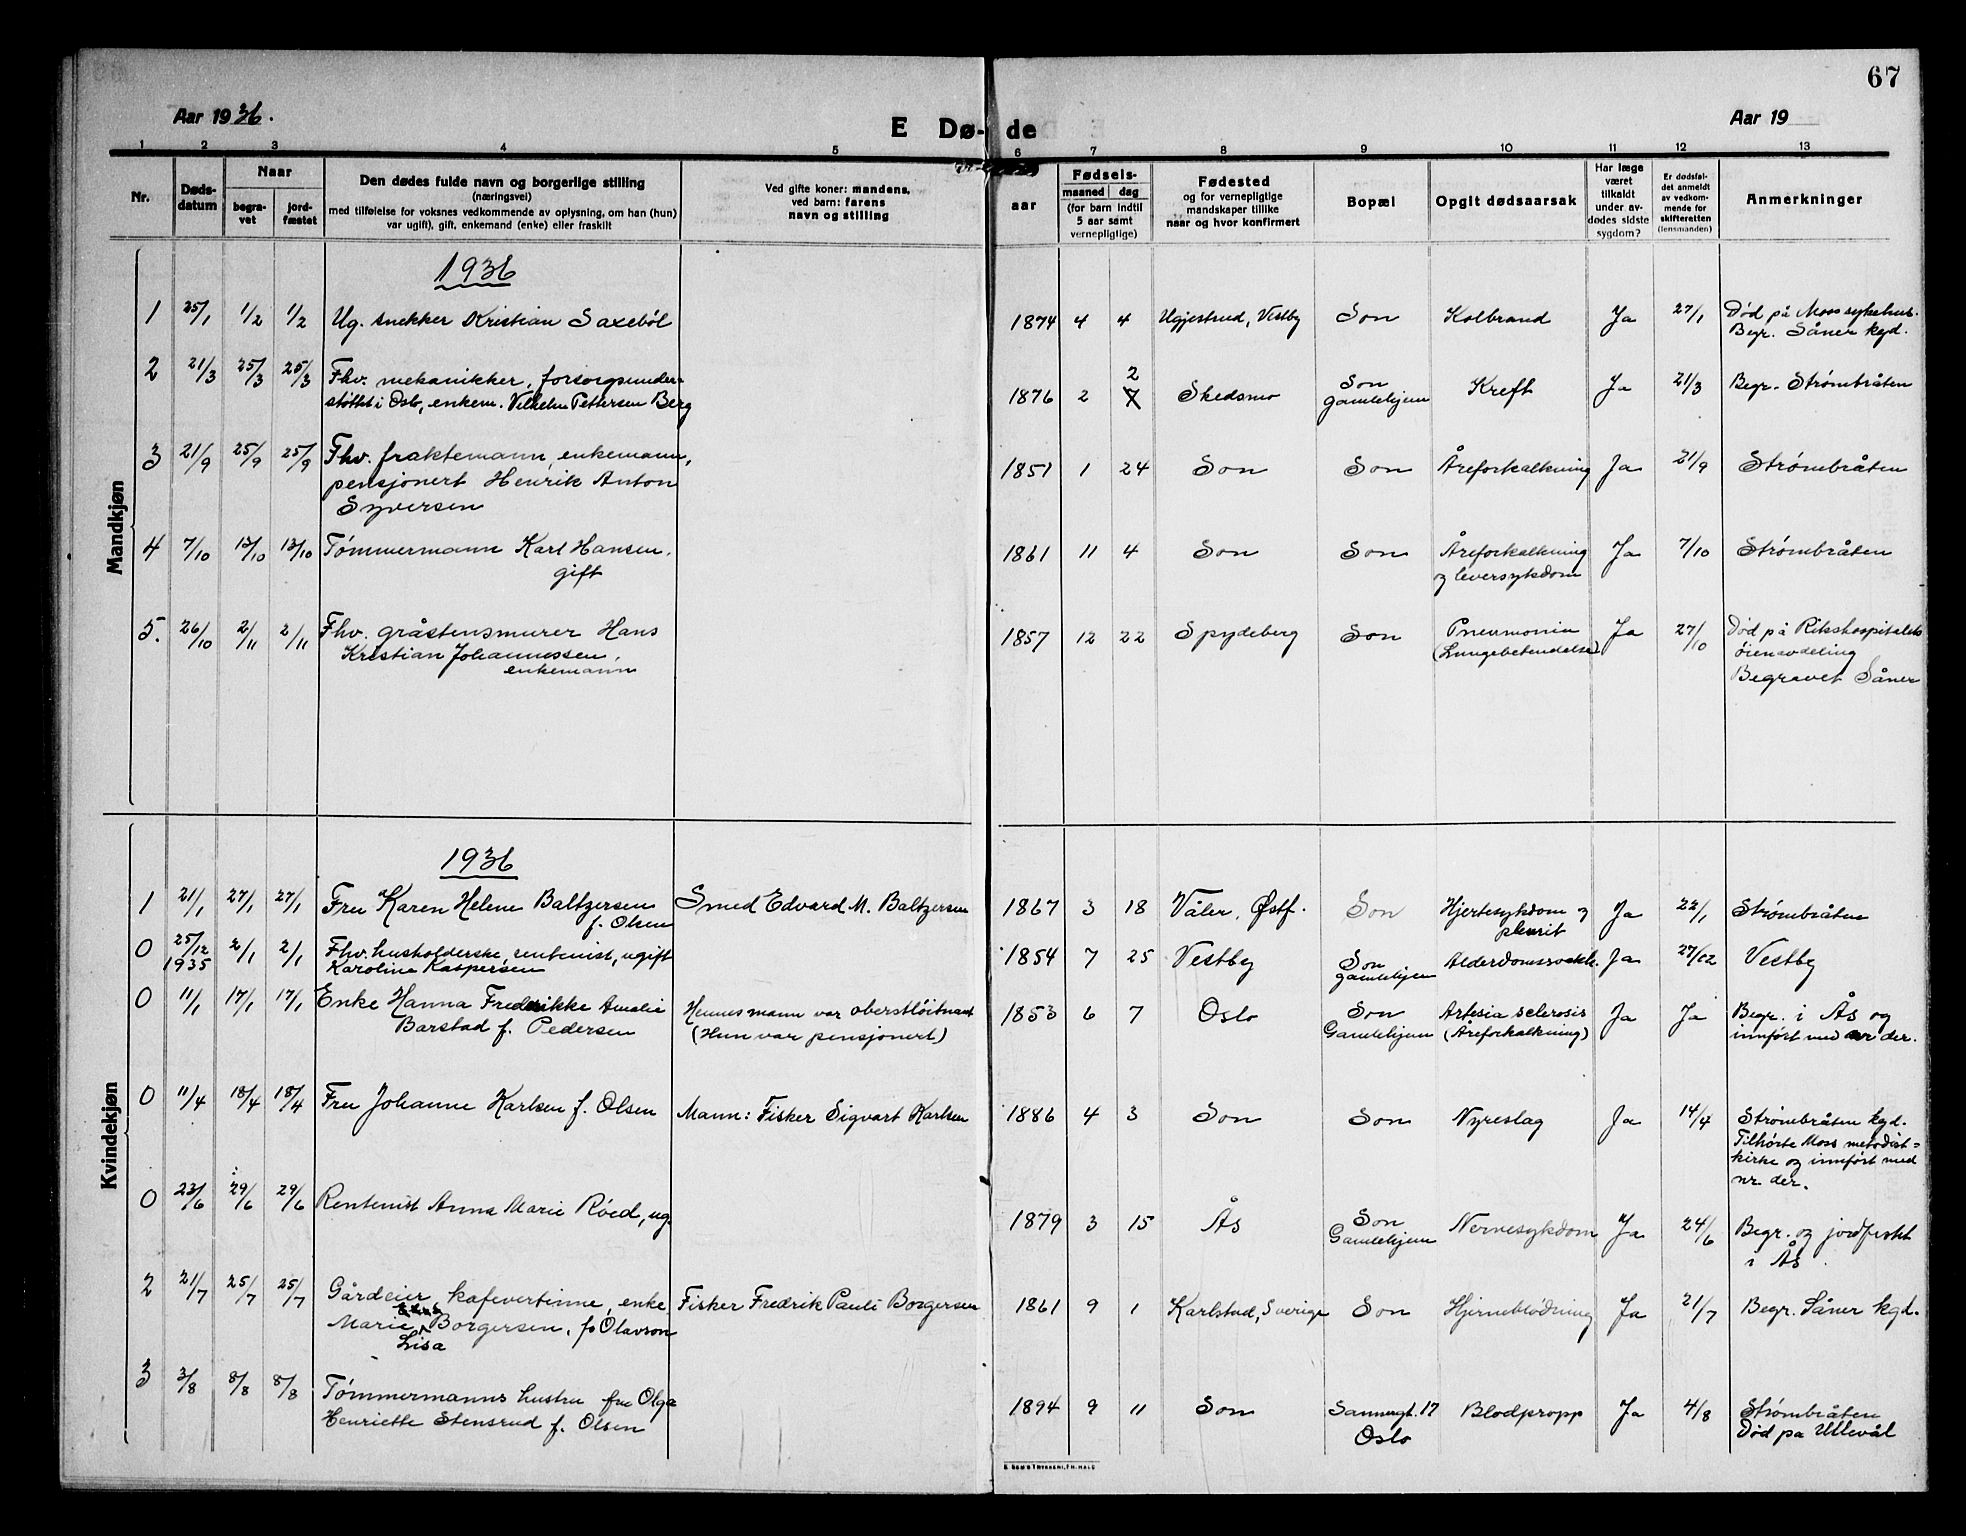 67
Aar 1936.
E Dø- de
Aar 19
1 2 3 4 5 6 7 8 9 10 11 12 13
Nr.
Døds-
datum
Naar
begra-
vet
jord-
fæstet
Den dødes fulde navn og borgerlige stilling
(næringsvei)
med tilføielse for voksnes vedkommende av oplysning, om han (hun)
var ugift), gift, enkemand (enke) eller fraskilt
Ved gifte koner: mandens,
ved barn: farens
navn og stilling
aar
Fødsels-
maaned dag
(for barn indtil
5 aar samt
vernepligtige)
Fødested
og for vernepligtige
mandskaper tillike
naar og hvor konfirmert
Bopæl
Opgit dødsaarsak
Har læge
været
tilkaldt
under av-
dødes sidste
sygdom?
Er dødsfal-
det anmeldt
av vedkom-
mende for
skifteretten
(lensmanden)
Anmerkninger
Mandkjøn
1936
1 25/1 1/2 1/2 Ug. snekker Kristian Saxebøl 1874 4 4 Ugjestrud, Vestby Son Kolbrand Ja 27/1 Død på Moss sykehus.
Begr. Såner kgd.
2 21/3 25/3 25/3 Fhv. mekanikker, forsorgsunder-
støttet i Oslo, enkem. Vilhelm Pettersen Berg 1876 2 7 2 Skedsmo Son
gamlehjem Kreft Ja 21/3 Begr. Strømbråten
3 21/9 25/9 25/9 Fhv. fraktemann, enkemann,
pensjonert Henrik Anton
Syversen 1851 1 24 Son Son Åreforkalkning Ja 21/9 Strømbråten
4 7/10 13/10 13/10 Tømmermann Karl Hansen,
gift 1861 11 4 Son Son Åreforkalkning
og leversykdom Ja 7/10 Strømbråten
5. 26/10 2/11 2/11 Fhv. gråstensmurer Hans
Kristian Johannessen,
enkemann 1857 12 22 Spydeberg Son Pneumonia
(Lungebetendelse) Ja 27/10 Død på Rikshospitalets
øienavdeling
Begravet Såner
Kvindekjøn
1936
1 21/1 27/1 27/1 Fru Karen Helene Baltzersen
f. Olsen Smed Edvard M. Baltzersen 1867 3 18 Våler, Østf. Son Hjertesykdom og
pleurit Ja 22/1 Strømbråten
0 25/12
1935 2/1 2/1 Fhv. husholderske, rentenist, ugift
Karoline Kaspersen 1854 7 25 Vestby Son
gamlehjem Alderdomssvakh. Ja 27/12 Vestby
0 11/1 17/1 17/1 Enke Hanna Fredrikke Amalie
Barstad f. Pedersen Hennes mann var oberstløitnant
(Hun var pensjonert) 1853 6 7 Oslo Son
Gamlehjem Artesia sclerosis
(Åreforkalkning) Ja Ja Begr. i Ås og
innført med nr der.
0 11/4 18/4 18/4 Fru Johanne Karlsen f. Olsen Mann: Fisker Sigvart Karlsen 1886 4 3 Son Son Nyreslag Ja 14/4 Strømbråten kgd.
Tilhørte Moss metodist-
kirke og innført med
nr der.
0 23/6 29/6 29/6 Rentenist Anna Marie Røed, ug. 1879 3 15 Ås Son
Gamlehjem Nervesykdom Ja 24/6 Begr. og jordfestet
i Ås.
2 21/7 25/7 25/7 Gårdeier, kafevertinne, enke
Marie Borgersen, f. Olavson
Lisa Fisker Fredrik Pauli Borgersen 1861 9 1 Karlstad, Sverige Son Hjerneblødning Ja 21/7 Begr. Såner kgd.
3 3/8 8/8 8/8 Tømmermanns hustru fru Olga
Henriette Stensrud f. Olsen 1894 9 11 Son Sannergt. 17
Oslo Blodpropp Ja 4/8 Strømbråten
Død på Ullevål